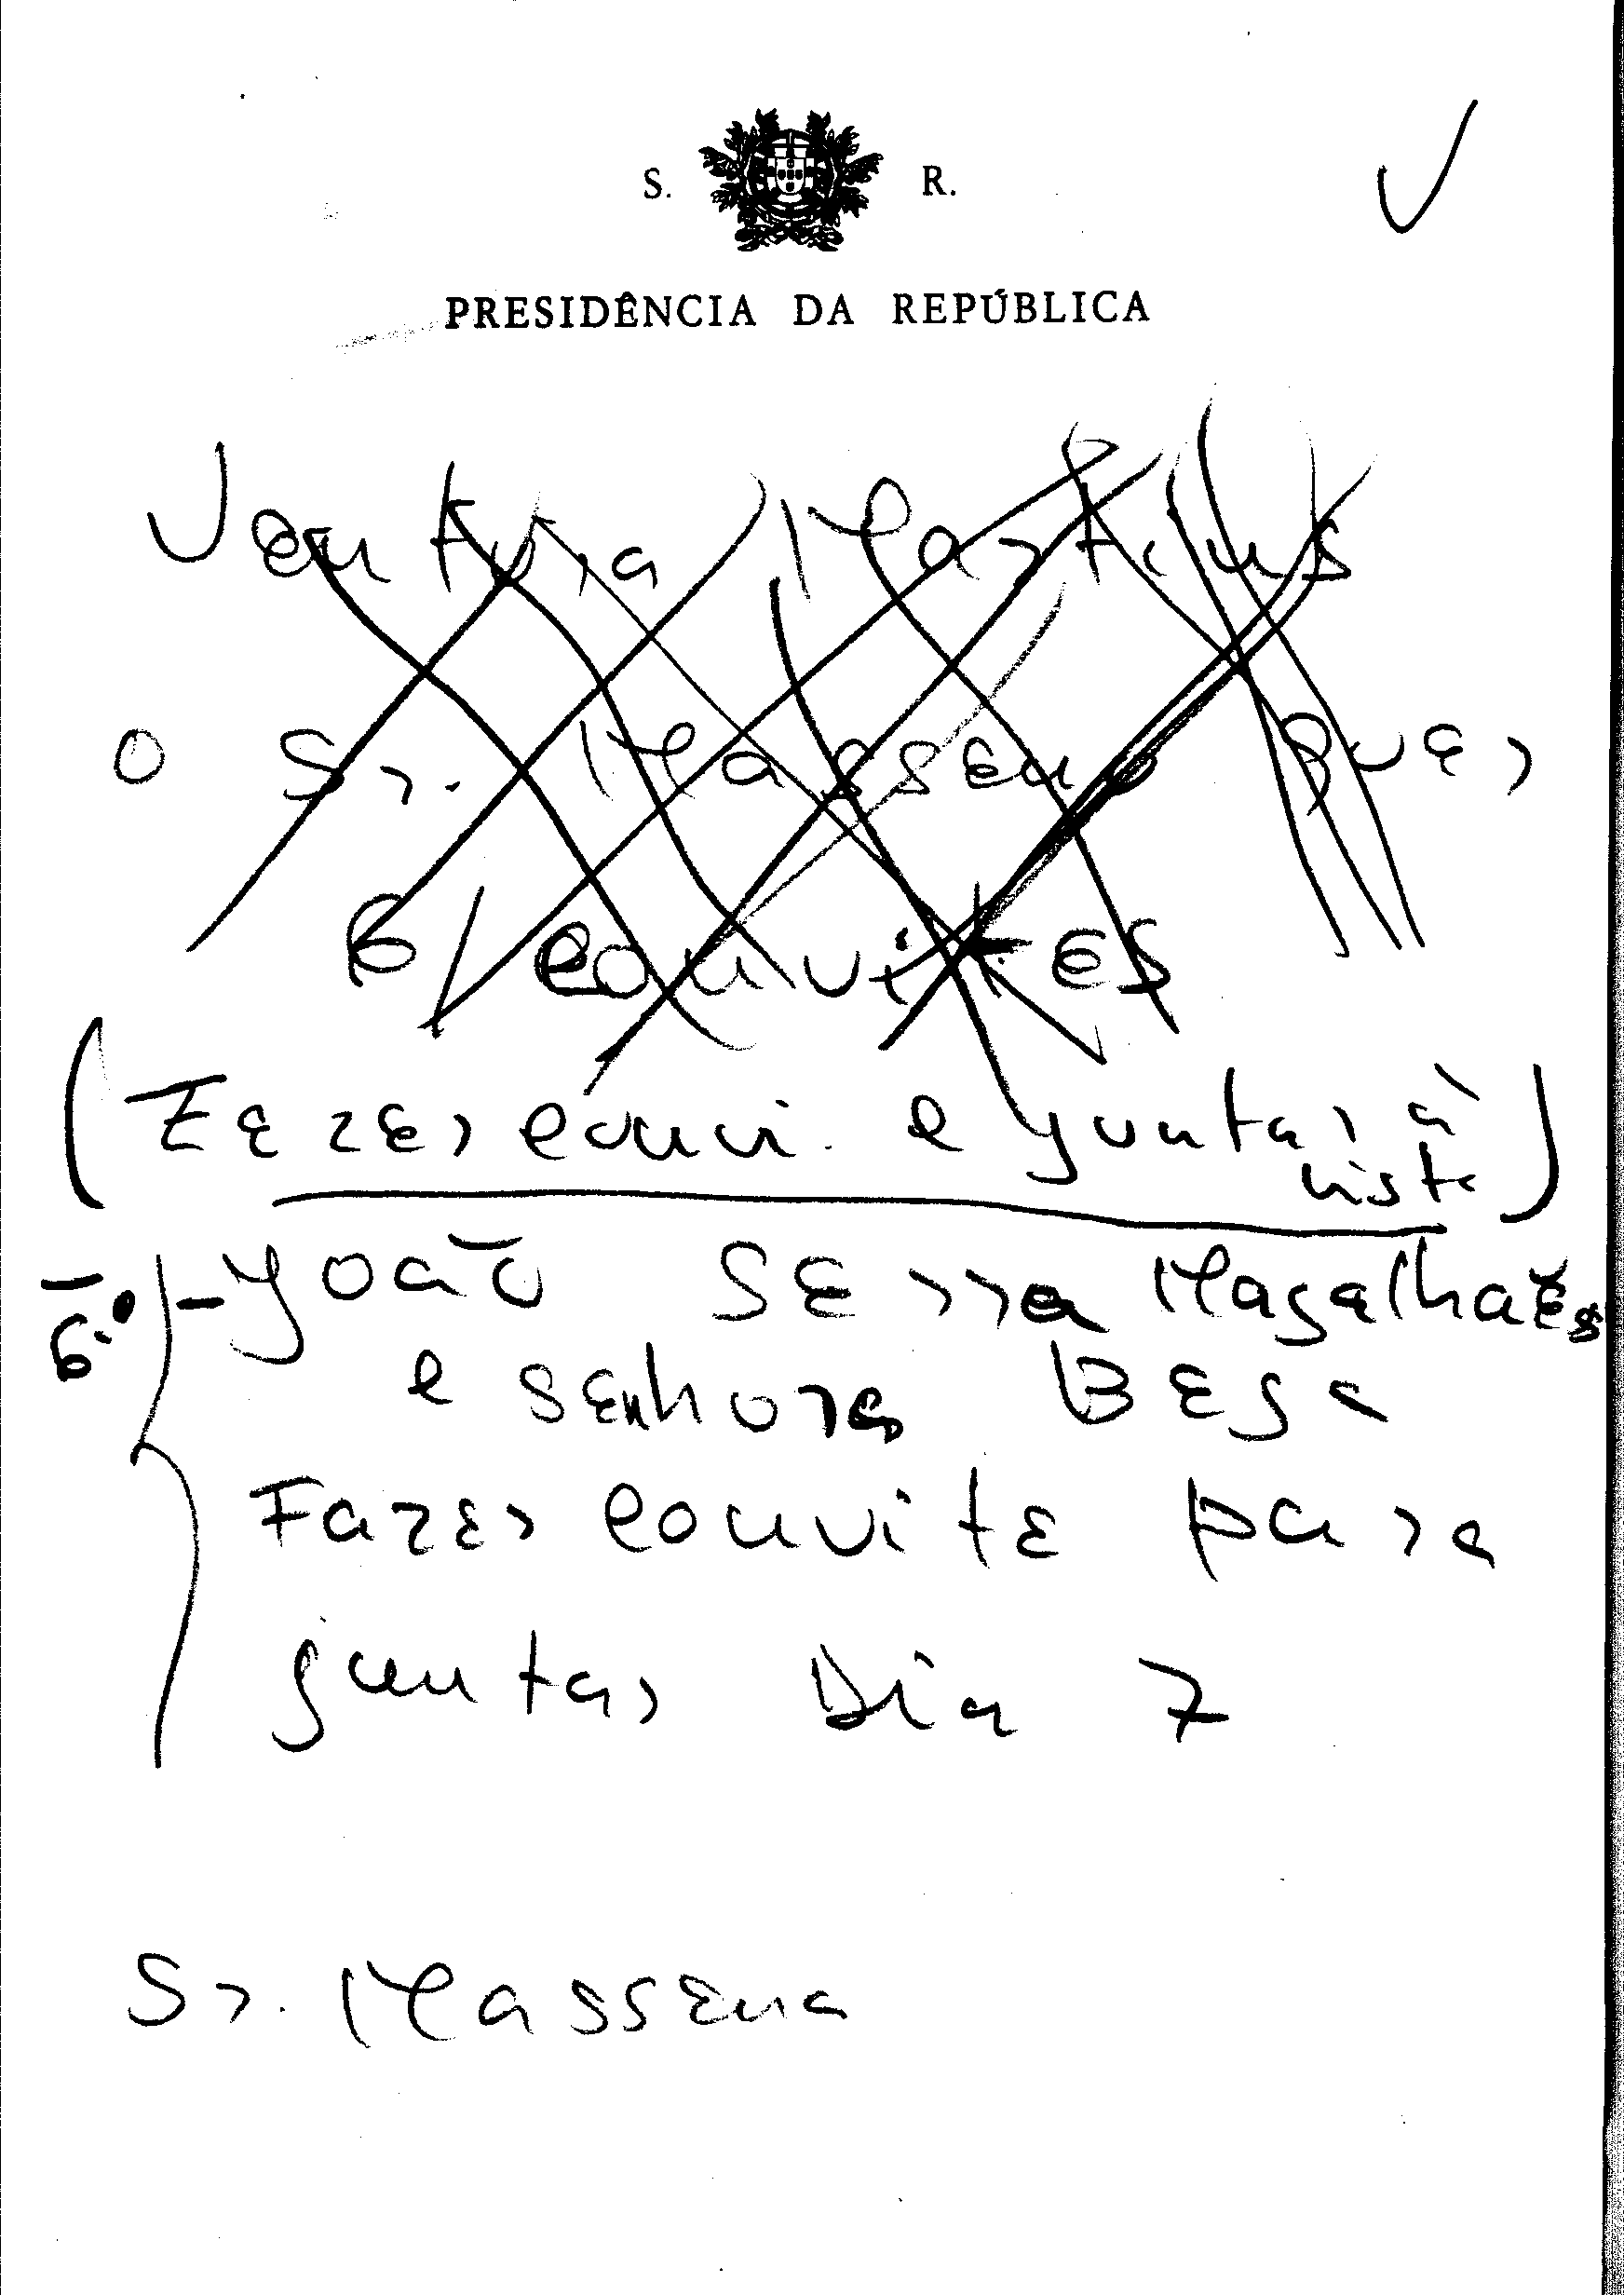 S. R.
PRESIDÊNCIA DA REPÚBLICA
Ventura Martins
o Sr. Massena quer
6/ convites
(Fazer convi. e juntar à
lista)
6.º - João Serra Magalhães
e senhora Besa
Fazer convite para
juntar Dia 7
Sr. Massena